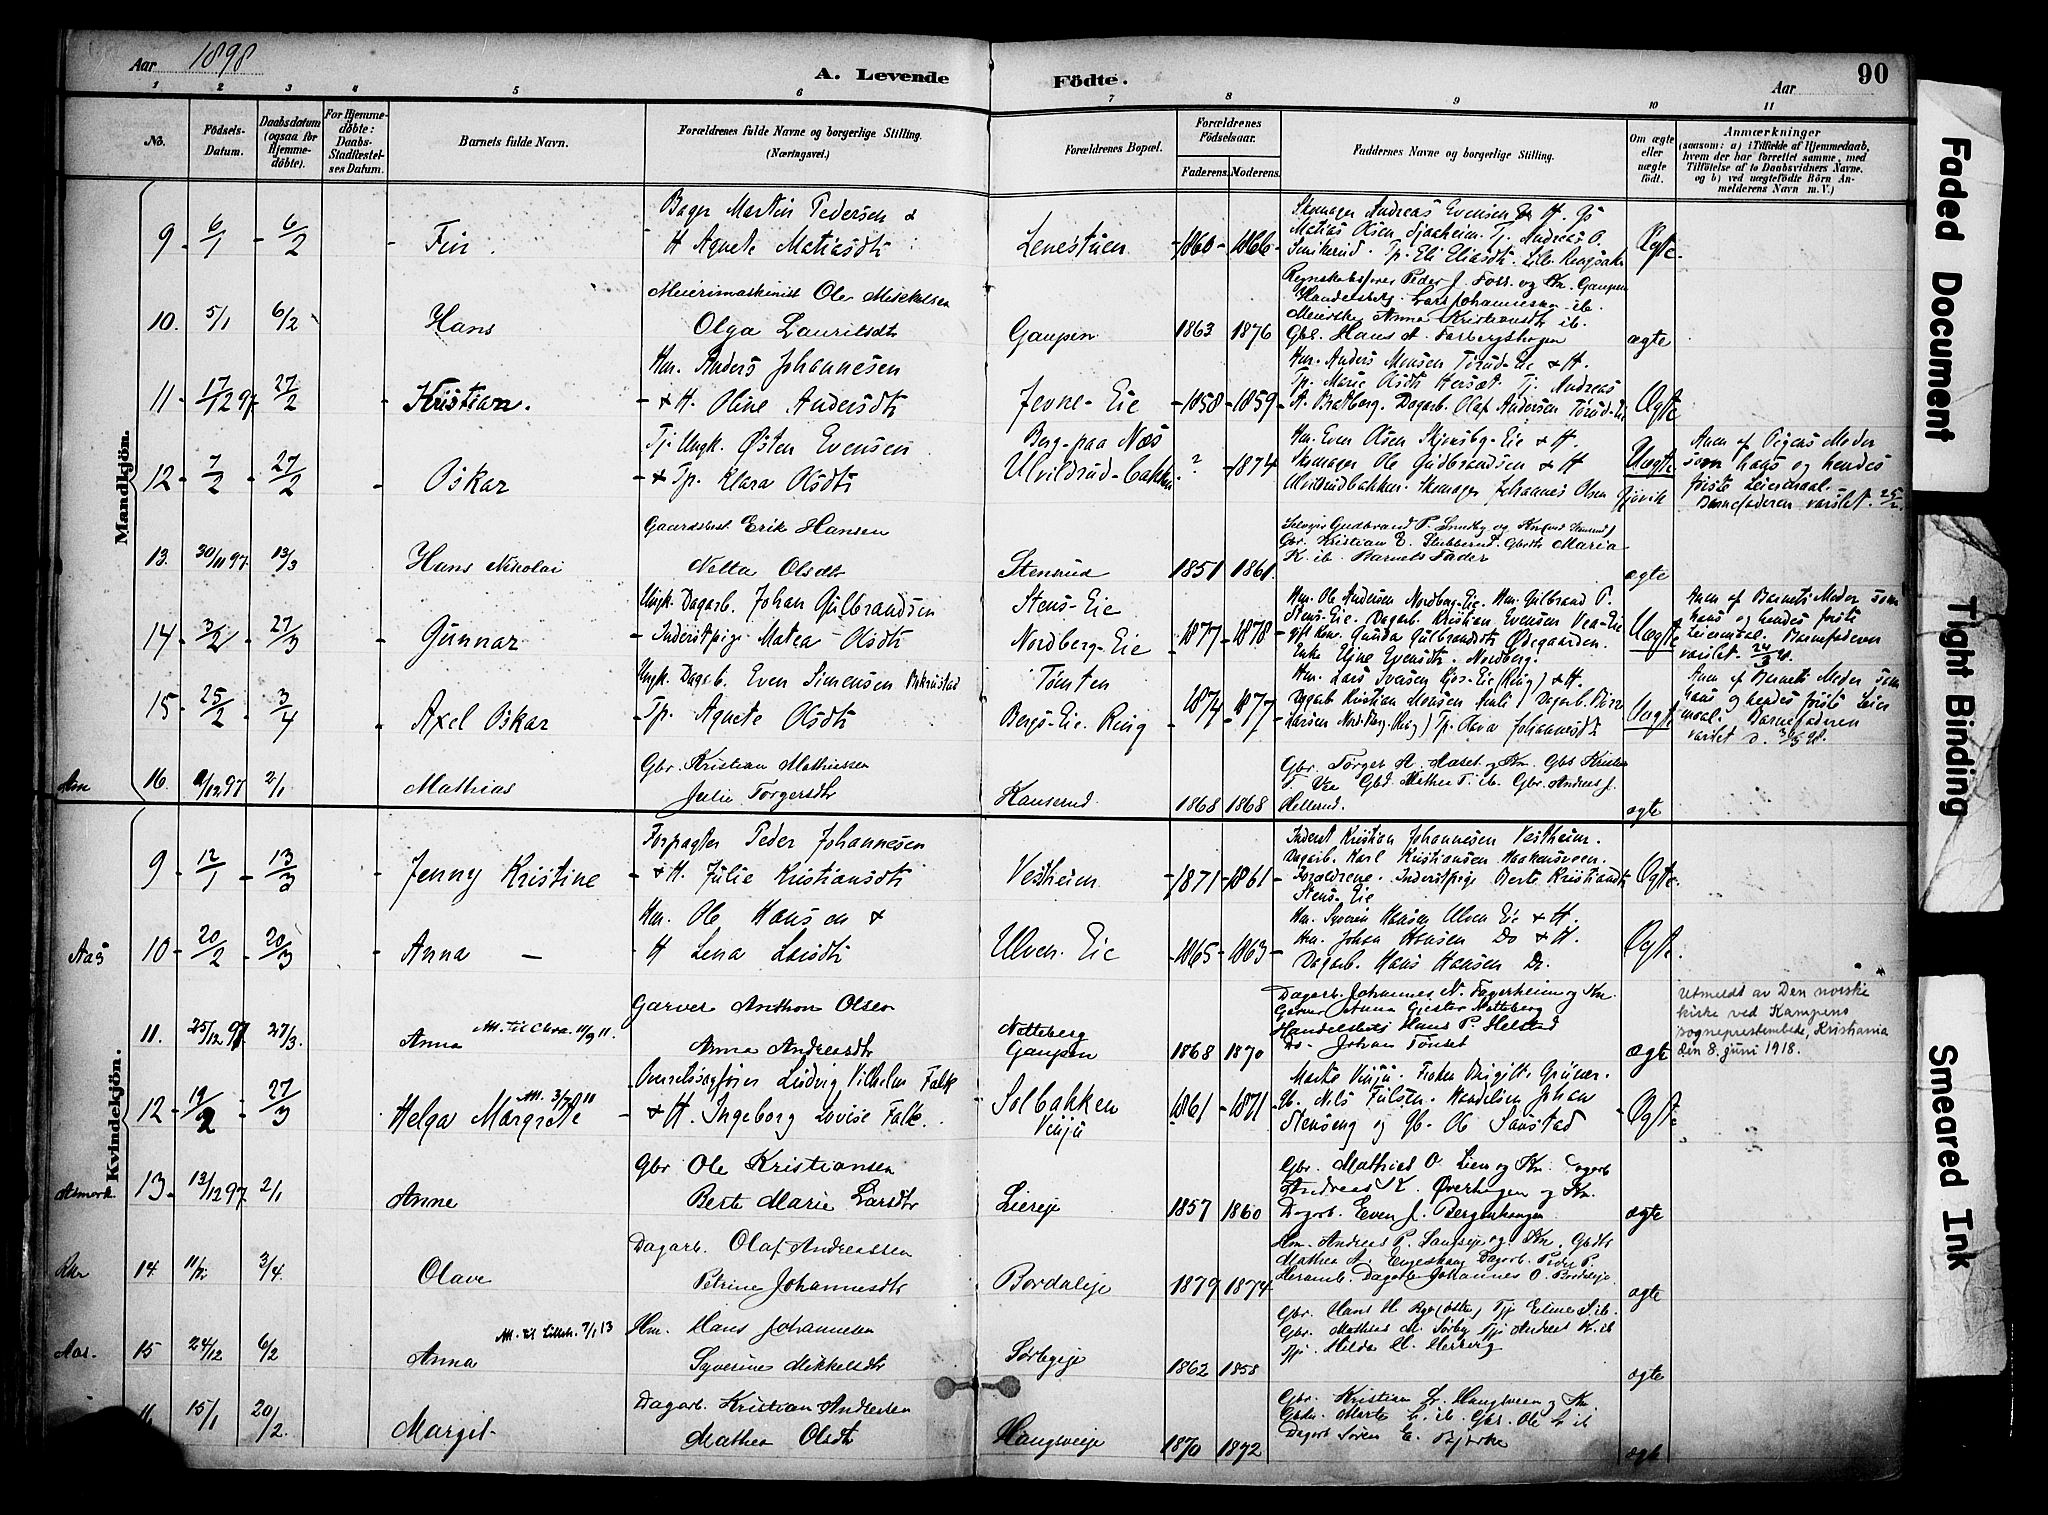 Aar 1898
A. Levende Födte.
Aar
90
1 2 3 4 5 6 7 8 9 10 11
No.
Födsels-Datum.
Daabsdatum (ogsaa for Hjemmedøbte).
For Hjemmedøbte: Daabs-Stadfæstelses Datum.
Barnets fulde Navn.
Forældrenes fulde Navne og borgerlige Stilling. (Næringsvei.)
Forældrenes Bopæl.
Forældrenes Födselsaar.
Faderens. Moderens.
Faddernes Navne og borgerlige Stilling.
Om ægte eller uægte født.
Anmærkninger
(saasom: a) i Tilfælde af Hjemmedaab, hvem der har forrettet samme, med Tilføielse af to Daabsvidners Navne, og b) ved uægtefødte Børn Anmelderens Navn m. V.)
Mandkjön.
9 6/1 6/2 Fin
Bager Martin Pedersen &
H Agnete Matiasdtr
Lenestuen 1860 1866
Skomager Andreas Evensen
Ægte
10. 5/1 6/2 Hans
Meierimaskinist Ole Mikkelsen
Olga Lauritsdtr
Gaupen 1863 1876
Regnskabsfører Peder J. Foss og Kn. Gaupen
Handelsbetj. Lars Johannesen ib.
Meierske Anna Kristiansdtr ib.
Gbr. Hans A. Farbergshagen
ægte
11 17/12 97 27/2 Kristian.
Hm. Anders Johannesen
& H. Oline Andersdtr
Jevne-Eie 1858 1859
Hm. Anders Monsen Torud-Eie & H.
Tp. Marie Olsdtr Tj. Andreas
A. Bratberg. Dagarb. Olaf Andersen
Ægte
12 7/2 27/2 Oskar
Tj. Ungk. Østen Evensen
& Tp. Klara Olsdtr
Berg paa Næs
Ulvildrud-bakken ? 1874
Hm. Even Olsen Skjonsby-Eie & H.
Skomager Ole Gudbrandsen & H
Skomager Johannes Olsen Gjøvik
Uægte
Anm. af Pigens Moder
som hans og hendes
første Leiermaal.
Barnefaderen varslet 25/2.
13. 30/11 97 13/3 Hans Nikolai
Gaardsbest. Erik Hansen
Netta Olsdtr
Stensrud 1851 1861
Selveier Gudbrand P. Sundby og
Gbr. Kristian E. Slubberud. Maria
K. ib. Barnets Fader
ægte
14 3/2 27/3 Gunnar
Ungk. Dagarb. Johan Gulbrandsen
Inderstpige Matea Olsdtr
Stens-Eie
Nordberg-Eie 1877 1878
Hm. Ole Andersen Nordberg-Eie. Hm. Gulbrand P.
Stens-Eie. Dagarb. Kristian Evensen Vea-Eie
gift Kone Gunda Gulbrandsdtr Ødegaarden.
Enke Eline Evensdtr. Nordberg.
Uægte
Anm. af Barnets Moder som
hans og hendes første
Leiermaal. Barnefaderen
varslet 24/3
15 25/2 3/4 Axel Oskar
Ungk. Dagarb. Even Simensen
Tp. Agnete Olsdtr
Tomten
Bergs-Eie, Ring 1874 1877
Hm. Lars Iversen (Ring) & H.
Dagarb. Kristian Monsen
Tp. Olava Johannesdtr
Uægte
Anm. af Barnets Moder som
hans og hendes første Leier
maal. Barnefaderen
varslet d.
16. 97 2/1 Mathias
Gbr. Kristian Mathiassen
Julie Torgersdtr
Kanserud 1868 1868
Gbr. Torger A. og Kn.
Gbr. Andreas J.
Hellerud.
ægte
Kvindekjön.
9 12/1 13/3 Jenny Kristine
Forpagter Peder Johannesen
& H. Julie Kristiansdtr
Vestheim 1871 1861
Inderst Kristian Johannesen Vestheim.
Dagarb. Karl Kristiansen Haakensveen.
Forældrene. Inderstpige Berte Kristiansdtr
Stens-Eie
Ægte.
Aas 10 20/2 20/3 Anna
Hm. Ole Hansen &
H Lena Larsdtr
Ulven-Eie 1865 1863
Hm. Syverin Hansen Ulven Eie & H.
Hm. Johan Hansen Do & H.
Dagarb. Hans Hansen Do.
Ægte
11. 25/12 97 27/3. Anna
Att. til Chra. 11/9 11.
Garver Anthon Olsen
Anna Andreasdtr
Nøtteberg
Gaupen 1868 1870
Dagarb. Johannes N. Fagerheim og Kn.
Handelsbetj. Hans P. Helstad
Do. Johan Tønset
ægte
Utmeldt av Den norske
kirke ved Kampens
sogneprestembede, Kristiania
den 8. juni 1918.
12 19/2 27/3 Helga Margrete
Att. 3/7 11
Overretssagfører Ludvig Vilhelm Falk
& H. Ingeborg Lovise Falk.
Solbakken
Vinju 1861 1871
Marte Vinju. Frøken Birgitte Grüner.
Gb. Nils Fulsen. Handelsm. Johan
Stenseng og Gb. Ole Sanstad
Ægte
Asmark 13. 13/12 97 2/1 Anne
Gbr Ole Kristiansen
Berte Marie Larsdtr
Liereie 1857 1860
Gbr. Mathias O. Lien og Kn. Dagarb
Andreas K. Øverhagen og Kn.
Dagarb. Even J. Bergerhaugen
ægte
14. 11/2 3/4. Olave
Dagarb. Olaf Andreassen
Petrine Johannesdtr
Bordaleie 1879 1874
Hm. Andreas P. og Kn. Gbdtr
Mathea A. Engeskaug Dagarb. Peder P.
Heramb. Dagarb Johannes O. Bordaleie
ægte
Aas. 15 24/12 6/2 Anna
Att. til Lilleh. 7/1 13
Hm. Hans Johannesen
Syverine Mikkelsdtr
Sørbyeie 1862 1858
Gbr. Hans H. Rye (østre) Tj.
Gbr. Mathias M. Sørby Tj. Andreas K. ib
Tj. Hilda H.
ægte
16 15/1 20/2. Margit
Dagarb. Kristian Andersen
Mathea Olsdtr
Haugsveeie 1870 1872
Gbr. Kristian L. Haugsveen og Kn
Gbdtr. Marte L. ib. Gbr. Ole L. ib
Dagarb Søren E. Bjerke
ægte
Faded Document
Tight Binding
Smeared Ink